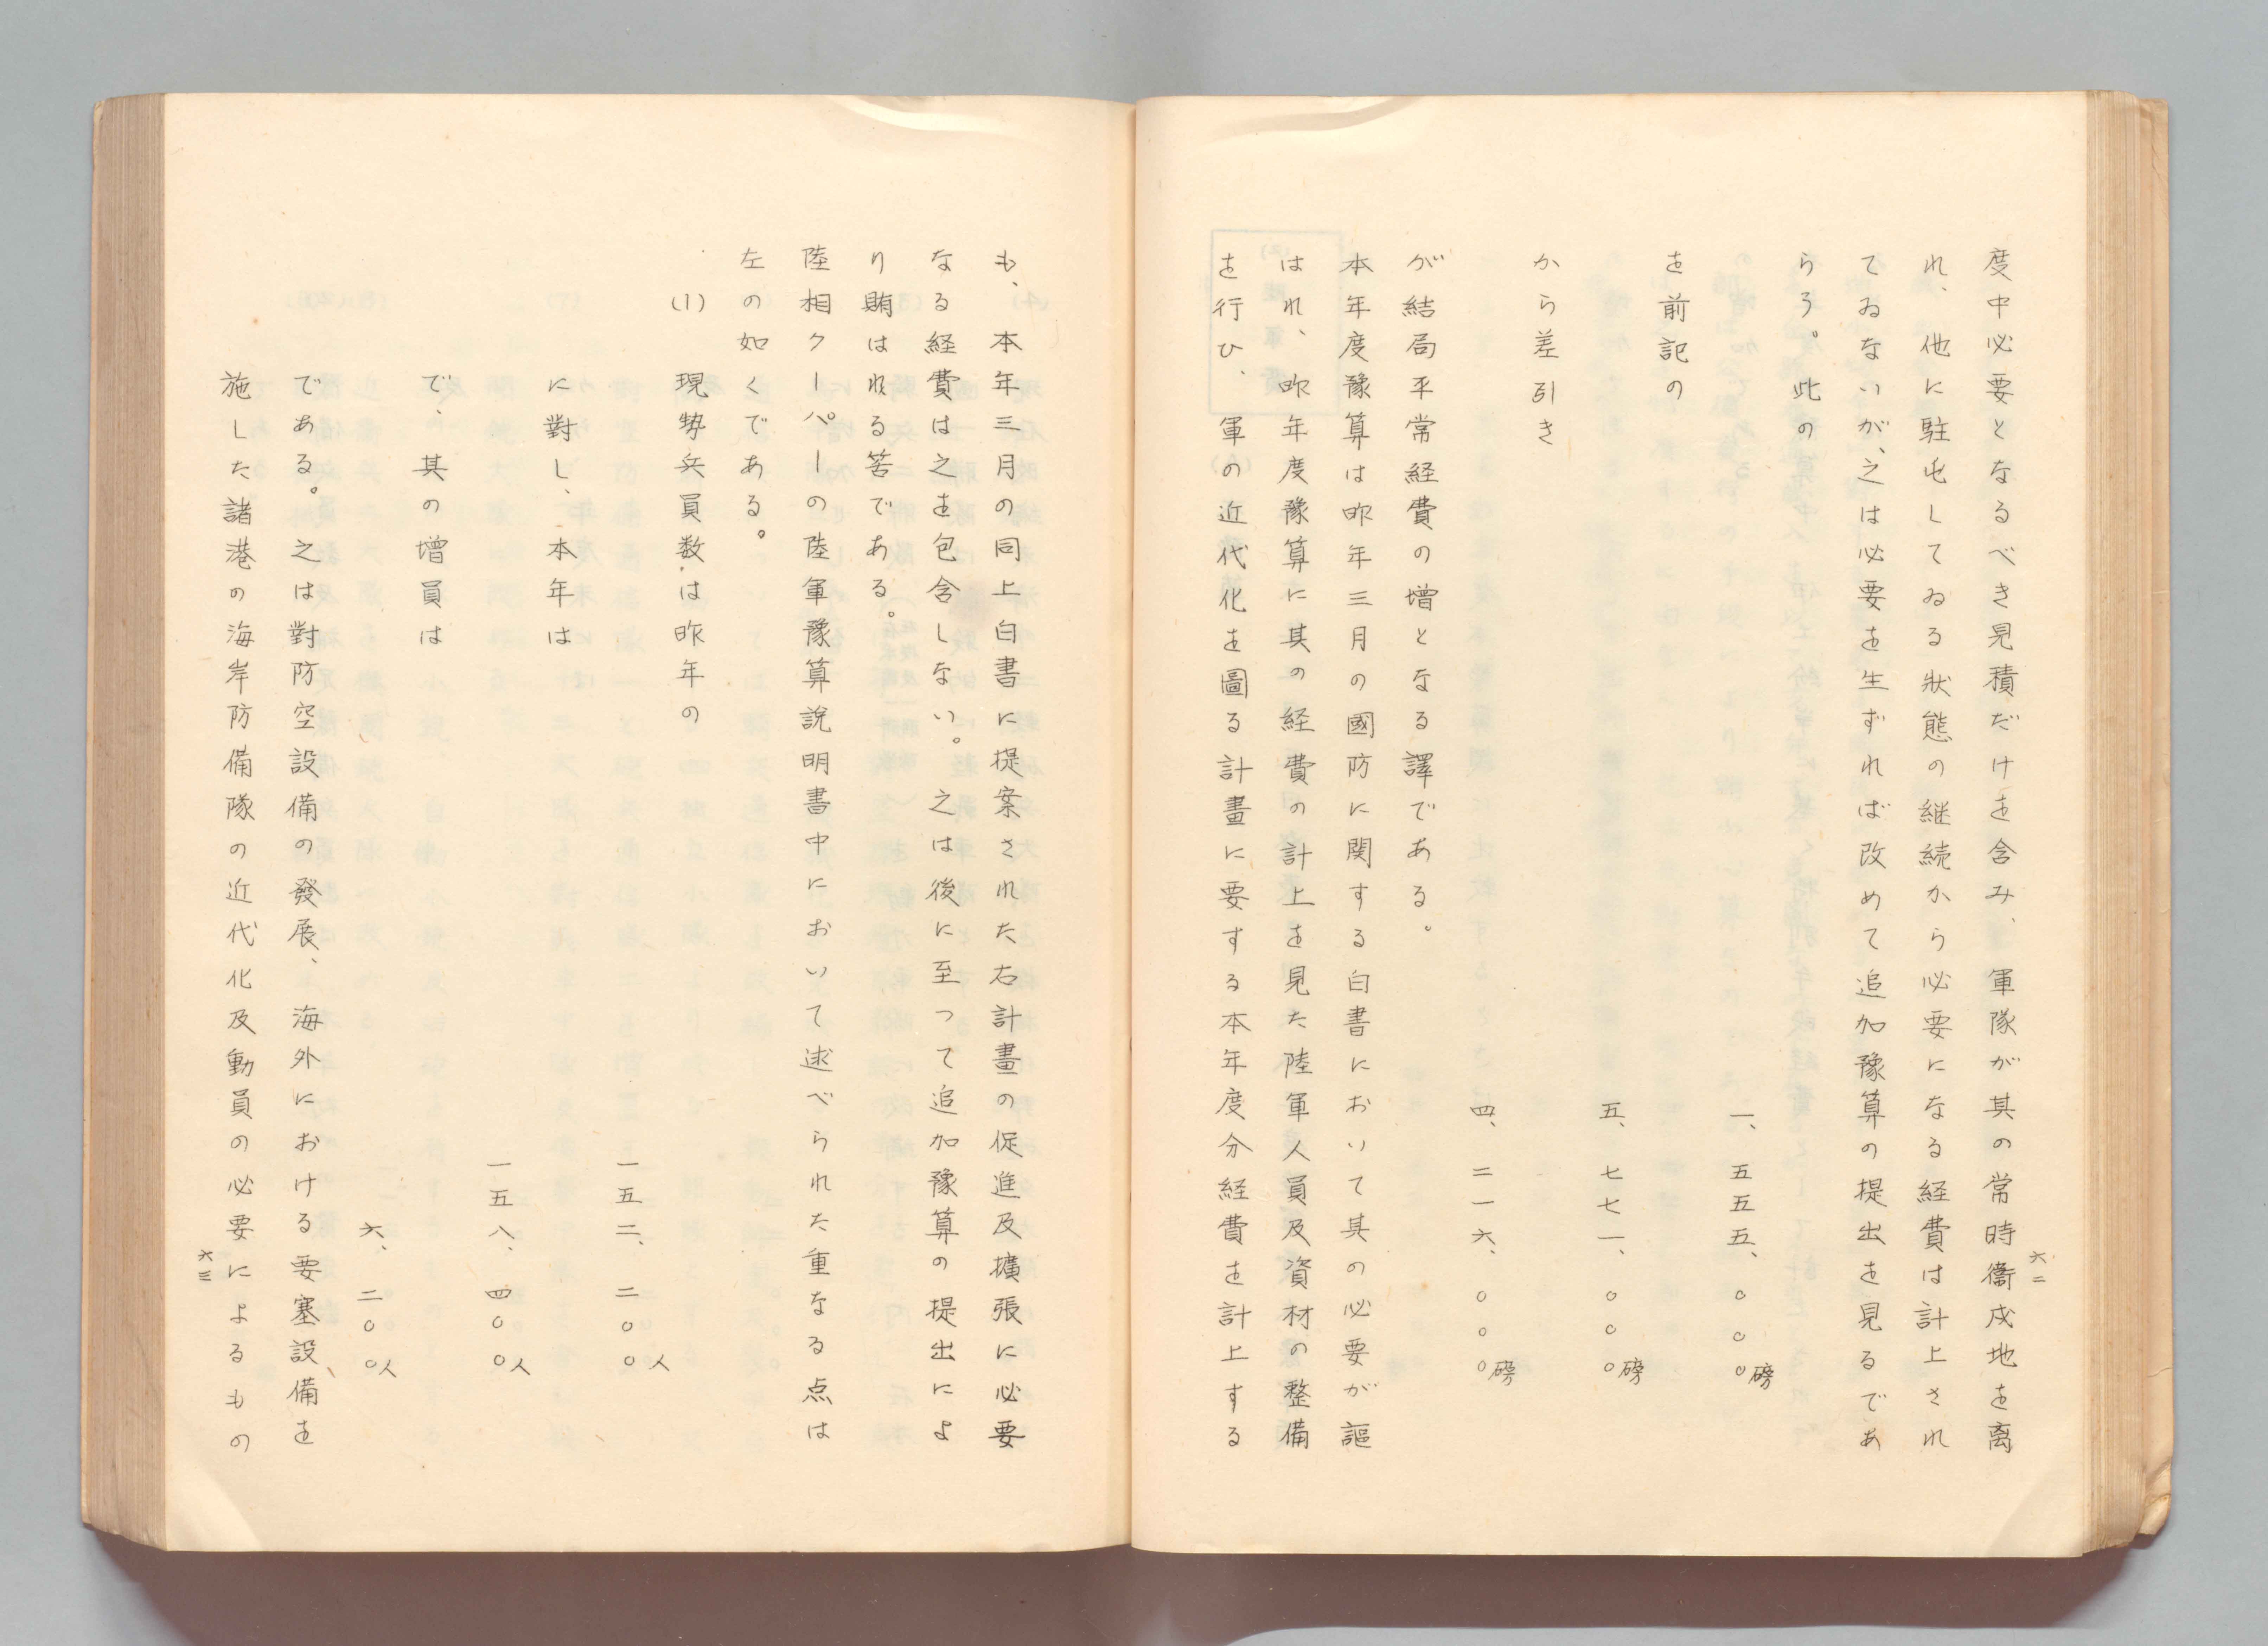 六二
度中必要となるべき見積だけを含み、軍隊が其の常時衞戍地を离
れ、他に駐屯してゐる狀態の継続から必要になる経費は計上され
てゐないが、之は必要を生ずれば改めて追加豫算の提出を見るであ
らう。此の
一、五五五、〇〇〇磅
を前記の
五、七七一、〇〇〇磅
から差引き
四、二一六、〇〇〇磅
が結局平常経費の増となる譯である。
本年度豫算は昨年三月の國防に関する白書において其の必要が謳
はれ、昨年度豫算に其の経費の計上を見た陸軍人員及資材の整備
を行ひ、軍の近代化を圖る計畫に要する本年度分経費を計上する
も、本年三月の同上白書に提案された右計畫の促進及擴張に必要
なる経費は之を包含しない。之は後に至つて追加豫算の提出によ
り賄はれる筈である。
陸相クーパーの陸軍豫算説明書中において述べられた重なる点は
左の如くである。
(1) 現勢兵員数は昨年の
一五二、二〇〇人
に對し、本年は
一五八、四〇〇人
で、其の増員は
六、二〇〇人
である。之は對防空設備の發展、海外における要塞設備を
施した諸港の海岸防備隊の近代化及動員の必要によるもの
六三